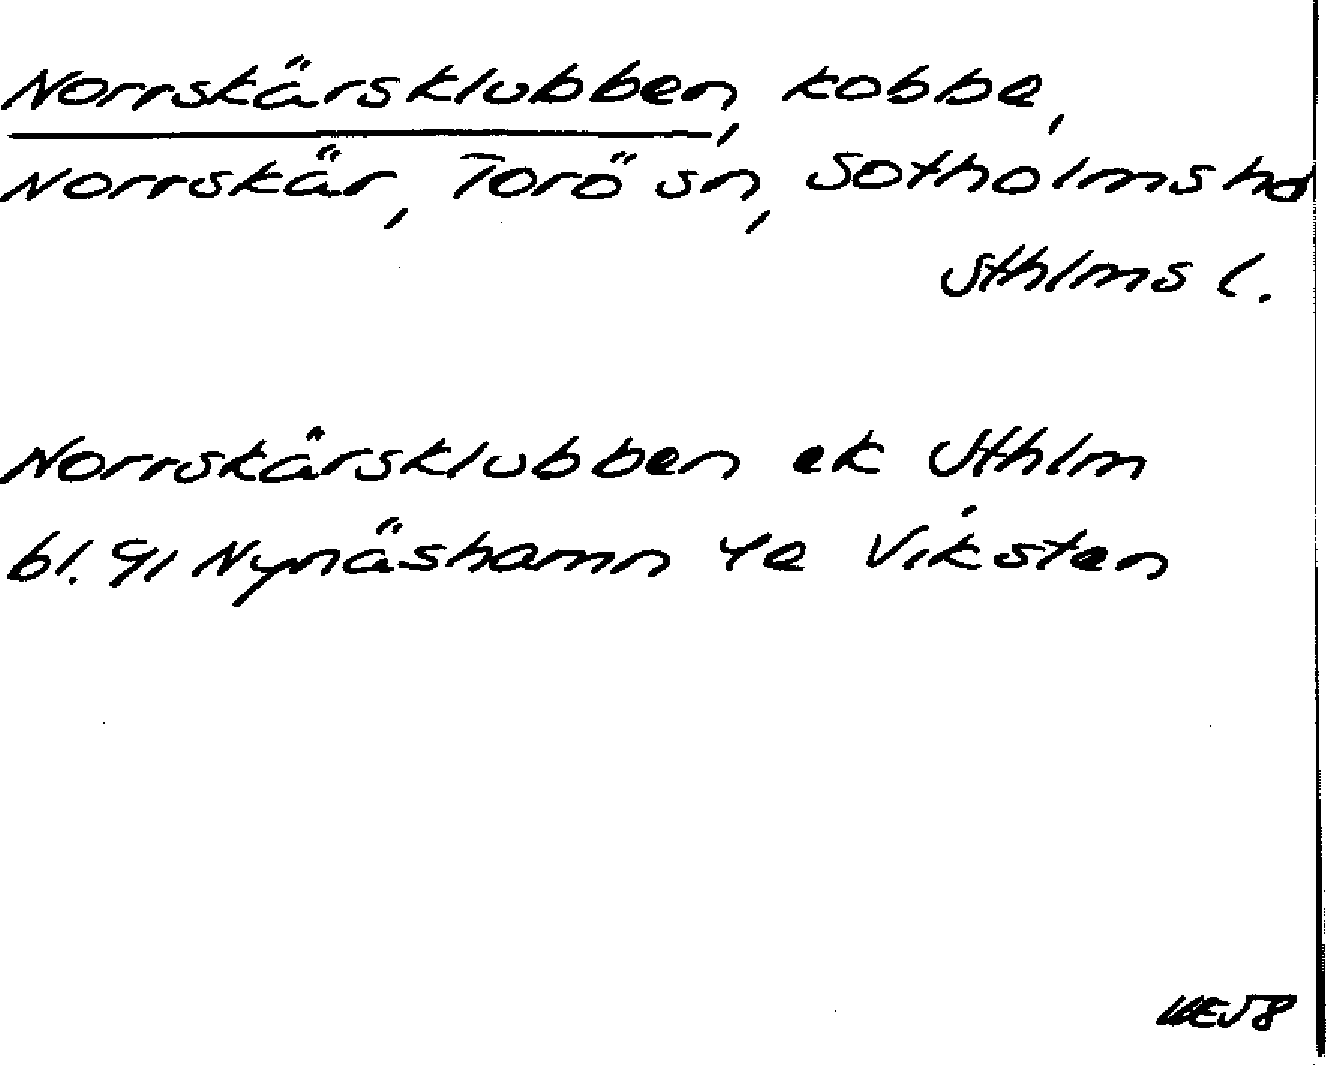 Norrskärsklubben, kobbe,
Norrskär, Torö sn, Sotholms hd
Sthlms l.
Norrskärsklubben ek Sthlm
bl. 91 Nynäshamn 4e Viksten